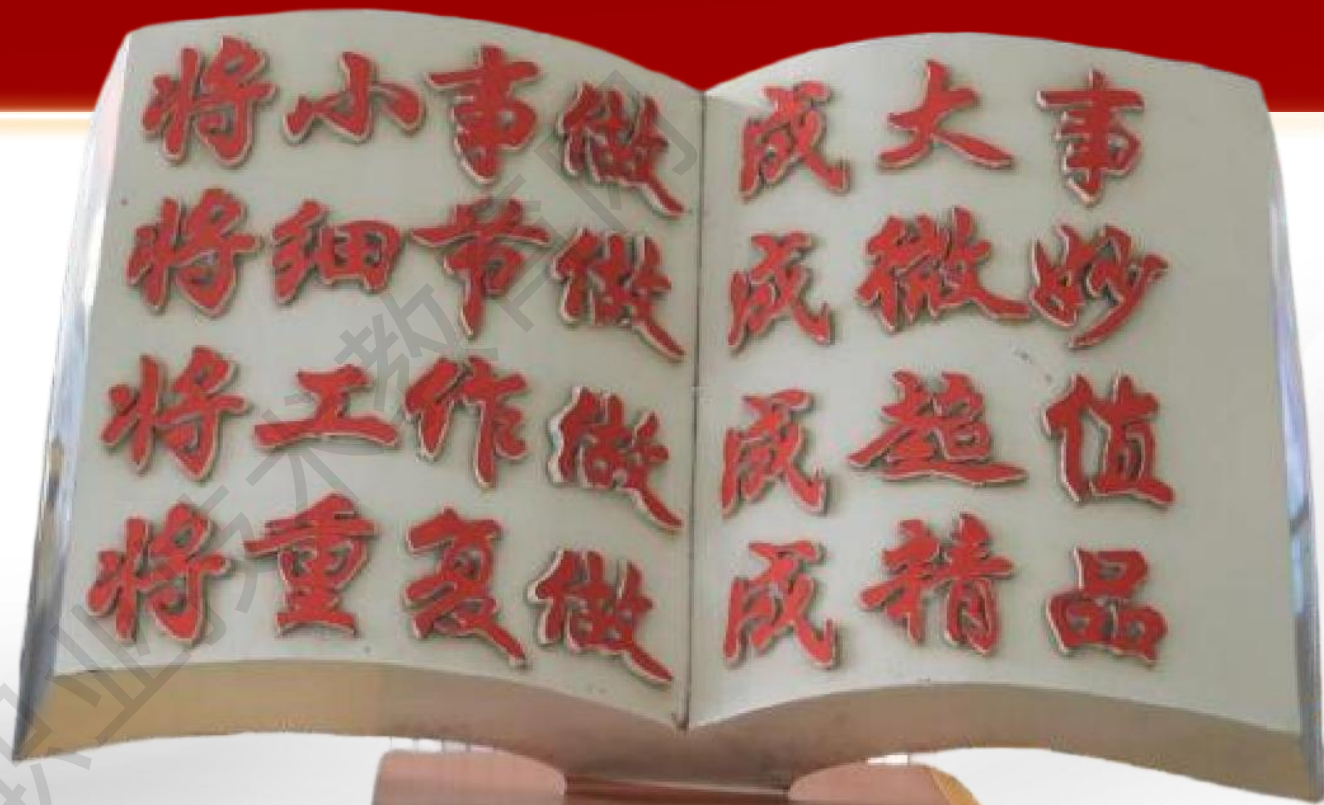 将小事做成大事
将细节做成微妙
将工作做成超值
将重复做成精品